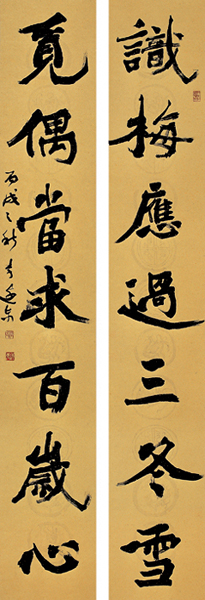 識梅應過三冬雪
覓偶當求百歲心
丙戌之秋